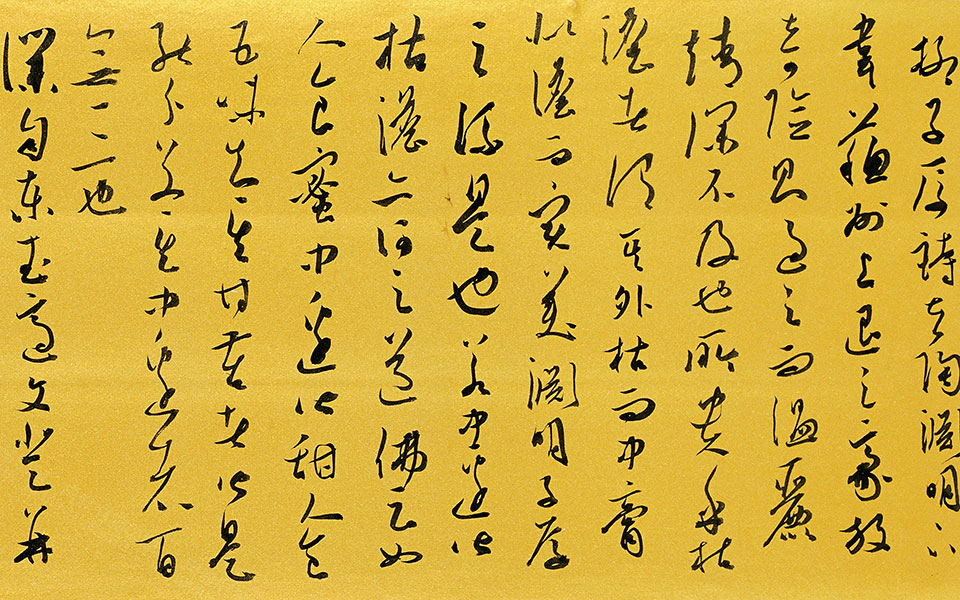 柳子厚詩在陶淵明下
韋蘇州上退之豪放
奇險則過之而溫麗
靖深不及也所貴乎枯
澹者謂其外枯而中膏
似澹而實美淵明子厚
之流是也若中邊皆
枯澹亦何足道佛云如
人食蜜中邊皆甜人食
五味知其甘苦者皆是
能分別其中邊者百
無一二也